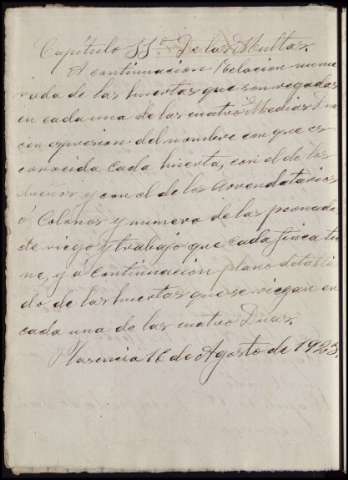 Capítulo 11º De las Multas.
A continuacion Relacion nume
rada de las huertas que son regadas
en cada una de las cuatro Medias
con expresion del nombre con que es
conocida cada huerta, con el de los
dueños y con el de los Arrendatarios
ó Colonos y numero de las
de riego y trabajo que cada finca tie
ne, y á continuacion plano detalla
do de las huertas que se riegan en
cada una de las cuatro Dias.
Plasencia 16 de Agosto de 1923,